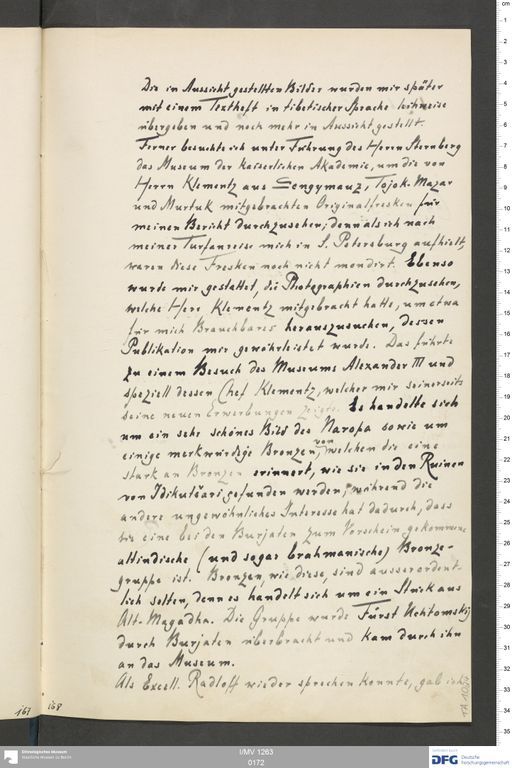 Die in Aussicht gestellten Bilder wurden mir später
mit einem Textheft in tibetischer Sprache leihweise
übergeben und noch mehr in Aussicht gestellt.
Ferner besuchte ich unter Führung des Herrn Sternberg
das Museum der Kaiserlichen Akademie, um die von
Herrn Klementz aus Sengymauz, Tojok-Mazar
und Murtuk mitgebrachten Originalfresken für
meinen Bericht durchzusehen; denn als ich nach
meiner Turfanreise mich in S. Petersburg aufhielt,
waren diese Fresken noch nicht mondirt. Ebenso
wurde mir gestattet, die Photographien durchzusehen,
welche Herr Klementz mitgebracht hatte, um etwa
für mich Brauchbares herauszusuchen, dessen
Publikation mir gewährleistet wurde. Das führte
zu einem Besuch des Museums Alexander III und
speziell dessen Chef Klementz, welcher mir seinerseits
seine neuen Erwerbungen zeigte. Es handelte sich
um ein sehr schönes Bild des Naropa sowie um
einige merkwürdige Bronzen, von welchen die eine
stark an Bronzen erinnert, wie sie in den Ruinen
von Idikutšari gefunden werden, während die
andere ungewöhnliches Interesse hat dadurch, dass
sie eine bei den Burjaten zum Vorschein gekommene
altindische (und sogar brahmanische) Bronze-
gruppe ist. Bronzen, wie diese, sind ausserordent-
lich selten, denn es handelt sich um ein Stück aus
Alt-Magadha. Die Gruppe wurde Fürst Uchtomskij
durch Burjaten überbracht und kam durch ihn
an das Museum.
Als Excell. Radloff wieder sprechen konnte, gab ich
167
168
I/MV 1263
0172
Ethnologisches Museum
Staatliche Museen zu Berlin
DFG
Deutsche
Forschungsgemeinschaft